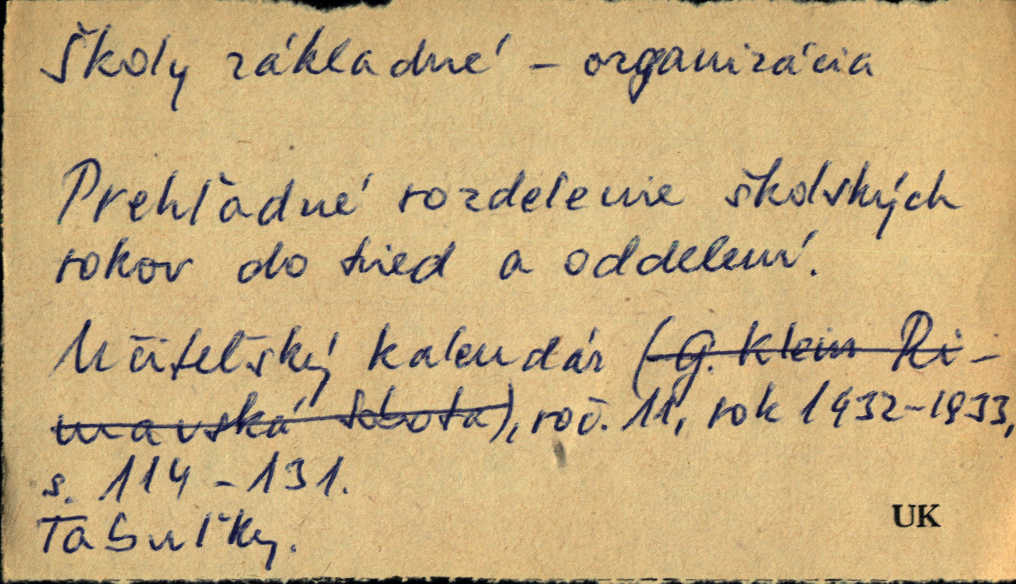 Školy základné - organizácia
Prehľadné rozdelenie školských
rokov do tried a oddelení.
Učiteľský kalendár (G. Klein Ri-
mavská Sobota), roč. 11, rok 1932-1933,
s. 114-131.
Tabuľky.
UK